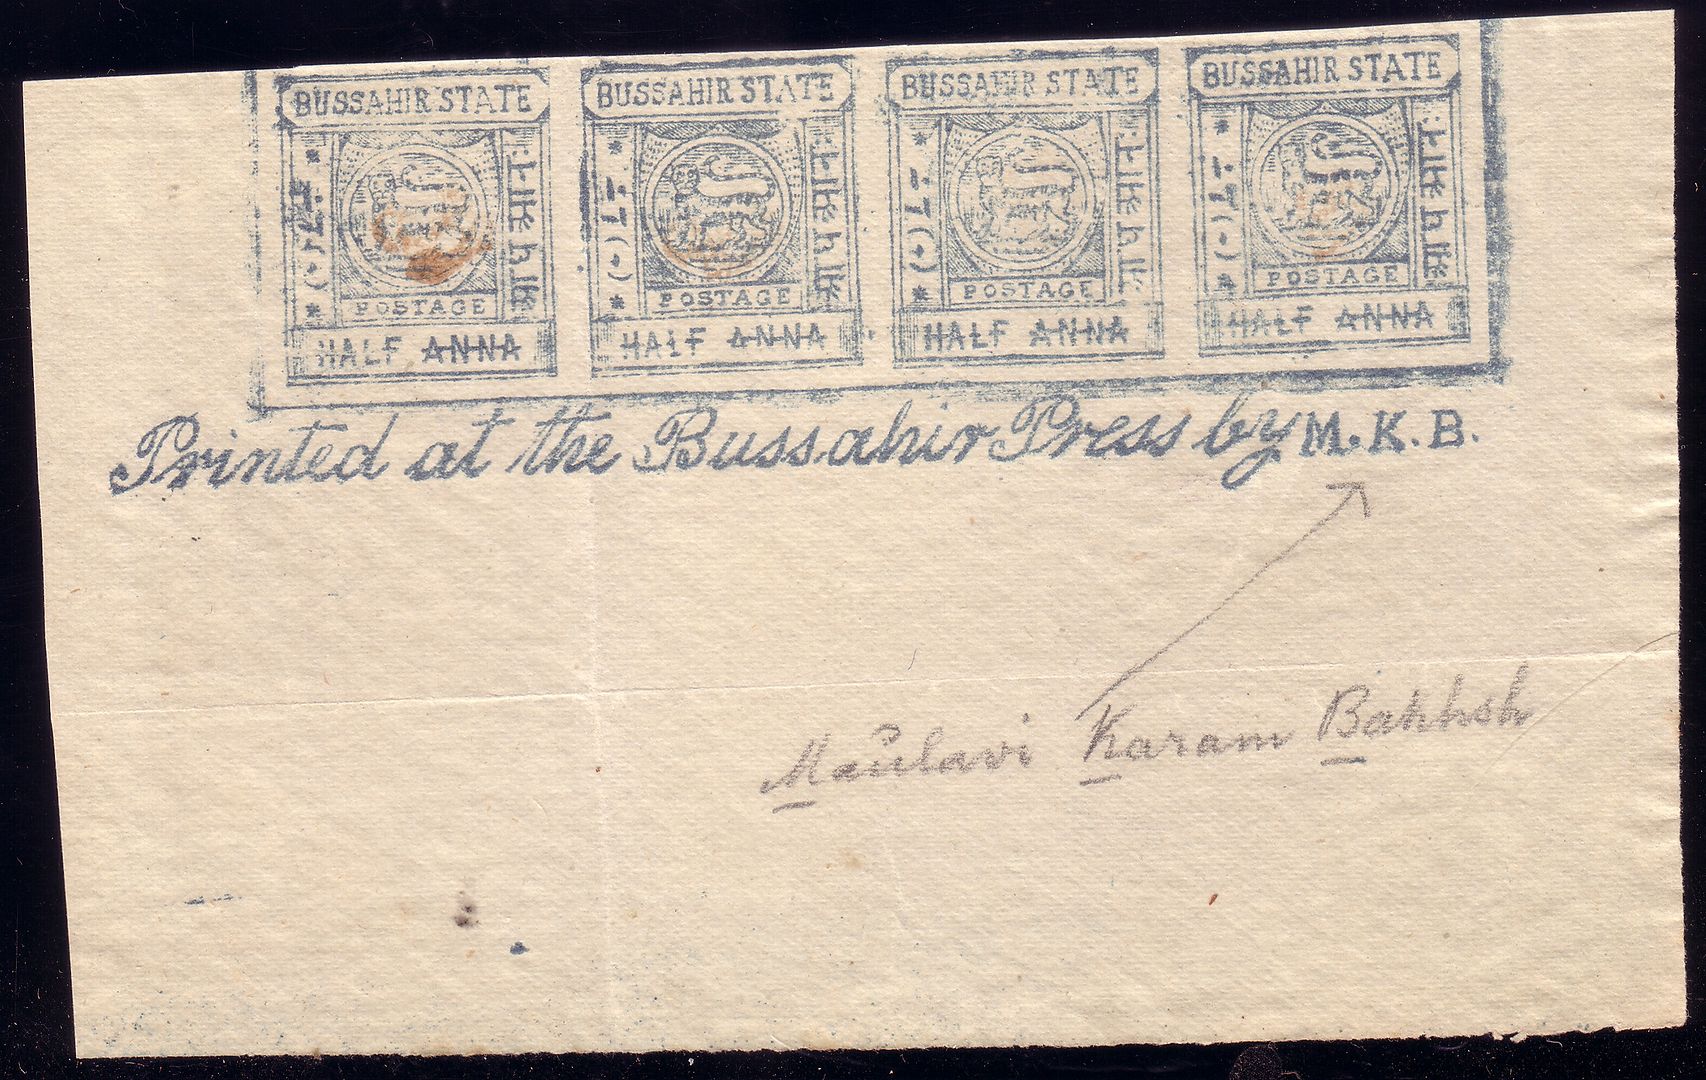 BUSSAHIR STATE BUSSAHIR STATE BUSSAHIR STATE BUSSAHIR STATE
POSTAGE POSTAGE POSTAGE POSTAGE
HALF ANNA HALF ANNA HALF ANNA HALF ANNA
Printed at the Bussahir Press by M.K.B.
Maulavi Karam Bakhsh